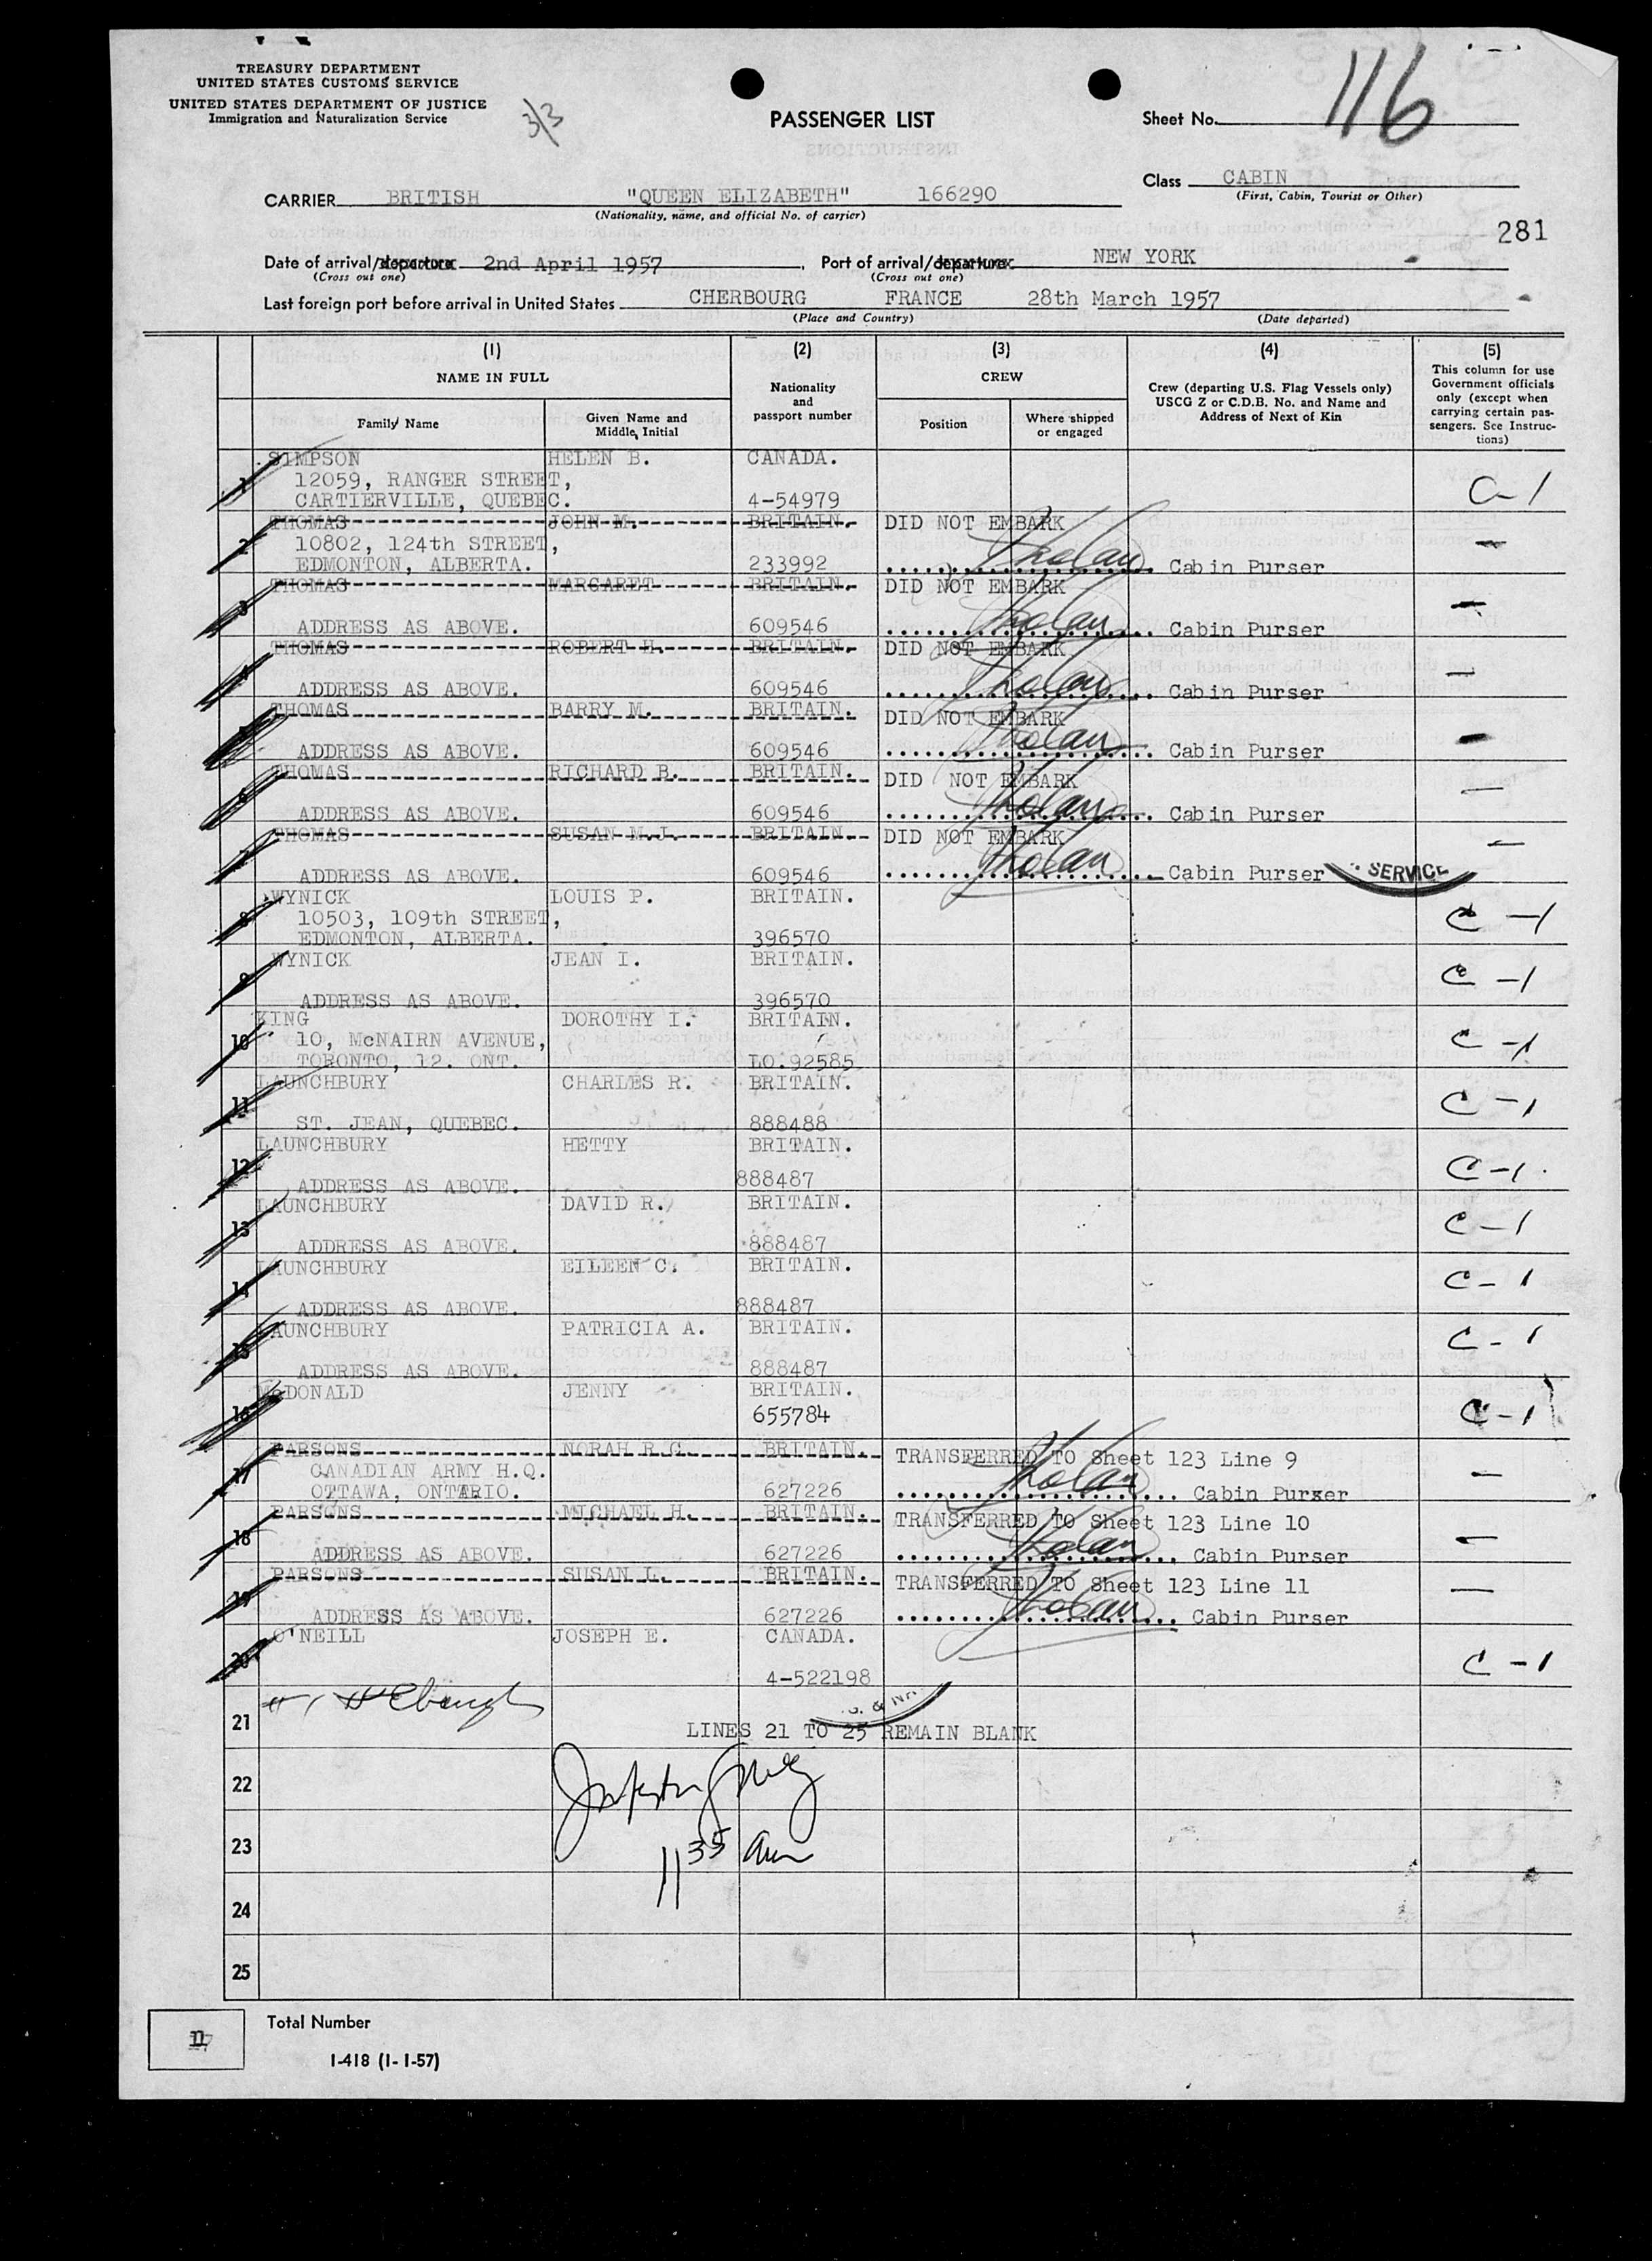 TREASURY DEPARTMENT
UNITED STATES CUSTOMS SERVICE
UNITED STATES DEPARTMENT OF JUSTICE
Immigration and Naturalization Service
3/3
PASSENGER LIST
Sheet No. 116
Class CABIN
(First, Cabin, Tourist or Other)
CARRIER BRITISH "QUEEN ELIZABETH" 166290
(Nationality, name, and official No. of carrier)
281
Date of arrival/departure 2nd April 1957, Port of arrival/departure NEW YORK
(Cross out one) (Cross out one)
Last foreign port before arrival in United States CHERBOURG FRANCE 28th March 1957
(Place and Country) (Date departed)
(1) (2) (3) (4) (5)
NAME IN FULL
Family Name
Given Name and Middle Initial
Nationality and passport number
CREW
Position
Where shipped or engaged
Crew (departing U.S. Flag Vessels only)
USCG Z or C.D.B. No. and Name and
Address of Next of Kin
This column for use
Government officials
only (except when
carrying certain pas-
sengers. See Instruc-
tions)
1 SIMPSON HELEN B. CANADA.
12059, RANGER STREET,
CARTIERVILLE, QUEBEC. 4-54979 C-1
2 THOMAS JOHN M. BRITAIN. DID NOT EMBARK
10802, 124th STREET,
EDMONTON, ALBERTA. 233992 Cabin Purser
3 THOMAS MARGARET BRITAIN. DID NOT EMBARK
ADDRESS AS ABOVE. 609546 Cabin Purser
4 THOMAS ROBERT H. BRITAIN. DID NOT EMBARK
ADDRESS AS ABOVE. 609546 Cabin Purser
5 THOMAS BARRY M. BRITAIN. DID NOT EMBARK
ADDRESS AS ABOVE. 609546 Cabin Purser
6 THOMAS RICHARD B. BRITAIN. DID NOT EMBARK
ADDRESS AS ABOVE. 609546 Cabin Purser
7 THOMAS SUSAN M.J. BRITAIN. DID NOT EMBARK
ADDRESS AS ABOVE. 609546 Cabin Purser
SERVICE
8 WYNICK LOUIS P. BRITAIN.
10503, 109th STREET,
EDMONTON, ALBERTA. 396570 C-1
9 WYNICK JEAN I. BRITAIN.
ADDRESS AS ABOVE. 396570 C-1
10 KING DOROTHY I. BRITAIN.
10, McNAIRN AVENUE,
TORONTO, 12. ONT. LO.92585 C-1
11 LAUNCHBURY CHARLES R. BRITAIN.
ST. JEAN, QUEBEC. 888488 C-1
12 LAUNCHBURY HETTY BRITAIN.
ADDRESS AS ABOVE. 888487 C-1
13 LAUNCHBURY DAVID R. BRITAIN.
ADDRESS AS ABOVE. 888487 C-1
14 LAUNCHBURY EILEEN C. BRITAIN.
ADDRESS AS ABOVE. 888487 C-1
15 LAUNCHBURY PATRICIA A. BRITAIN.
ADDRESS AS ABOVE. 888487 C-1
16 McDONALD JENNY BRITAIN.
655784 C-1
17 PARSONS NORAH R.C. BRITAIN. TRANSFERRED TO Sheet 123 Line 9
CANADIAN ARMY H.Q.
OTTAWA, ONTARIO. 627226 Cabin Purser
18 PARSONS MICHAEL H. BRITAIN. TRANSFERRED TO Sheet 123 Line 10
ADDRESS AS ABOVE. 627226 Cabin Purser
19 PARSONS SUSAN L. BRITAIN. TRANSFERRED TO Sheet 123 Line 11
ADDRESS AS ABOVE. 627226 Cabin Purser
20 O'NEILL JOSEPH E. CANADA.
4-522198 C-1
21
LINES 21 TO 25 REMAIN BLANK
22
23
11 35 am
24
25
Total Number
I-418 (1-1-57)